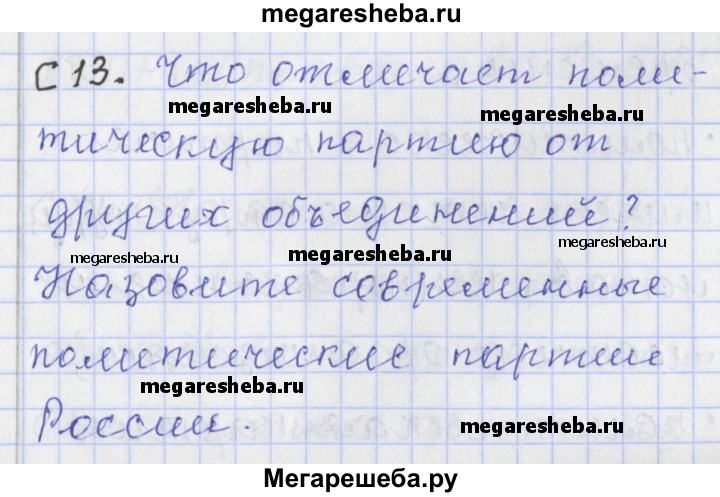 megaresheba.ru
С 13. Что отличает поли-
megaresheba.ru megaresheba.ru
тическую партию от
других объединений?
megaresheba.ru megaresheba.ru megaresheba.ru
Назовите современные
политические партии
megaresheba.ru megaresheba.ru
России.
Мегарешеба.ру